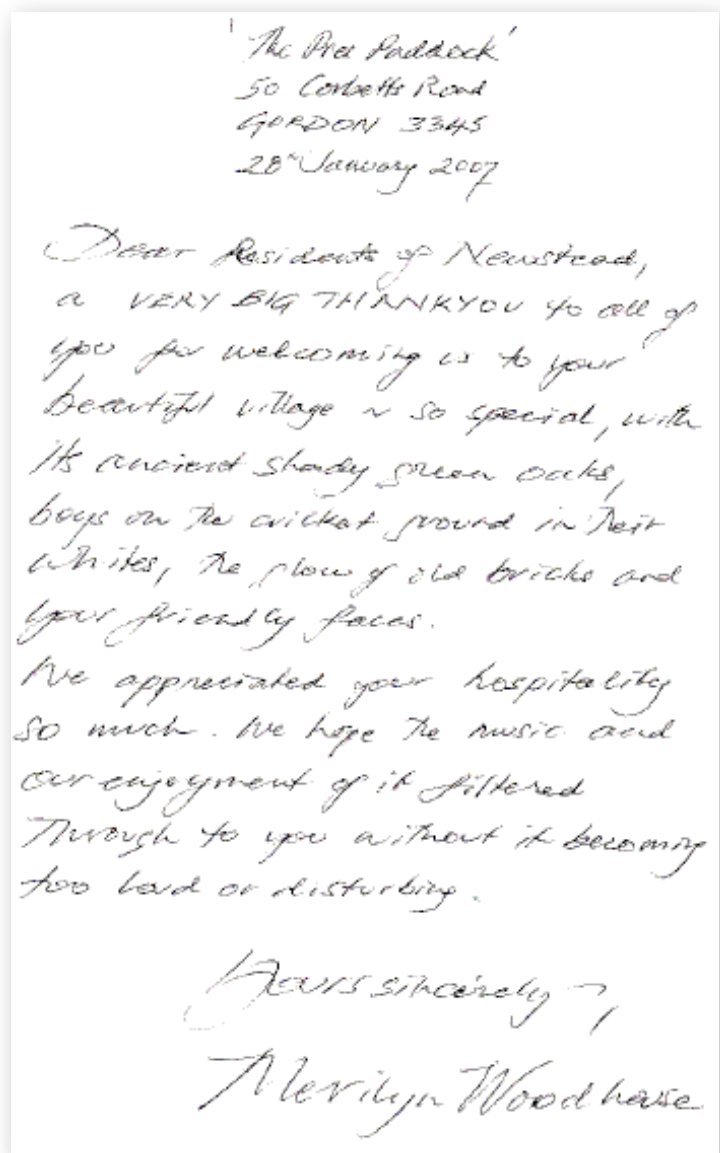 'The Pree Paddock'
50 Corbetts Road
GORDON 3345
28th January 2007
Dear Residents of Newstead,
a VERY BIG THANKYOU to all of
you for welcoming us to your
beautiful village ~ so special, with
its ancient shady green oaks,
boys on the cricket ground in their
whites, the glow of old bricks and
your friendly faces.
We appreciated your hospitality
so much. We hope the music and
our enjoyment of it filtered
through to you without it becoming
too loud or disturbing.
Yours sincerely,
Merilyn Woodhouse